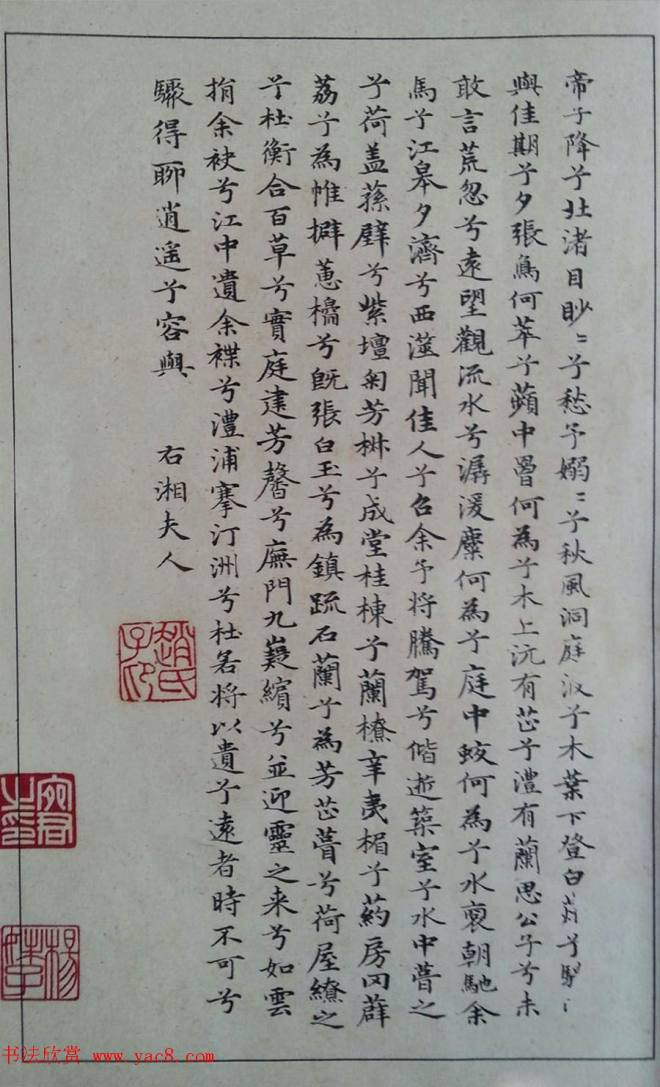 帝子降兮北渚目眇〻兮愁予嫋〻兮秋風洞庭波兮木葉下登白薠兮騁
與佳期兮夕張鳥何萃兮蘋中罾何為兮木上沅有芷兮澧有蘭思公子兮未
敢言荒忽兮遠望觀流水兮潺湲麋何為兮庭中蛟何為兮水裔朝馳余
馬兮江皋夕濟兮西澨聞佳人兮召余予將騰駕兮偕逝築室兮水中葺之
兮荷盖蓀壁兮紫壇匊芳椒兮成堂桂棟兮蘭橑辛夷楣兮葯房罔薜
荔兮為帷擗蕙櫋兮既張白玉兮為鎮疏石蘭兮為芳芷葺兮荷屋繚之
兮杜衡合百草兮實庭建芳馨兮廡門九嶷繽兮並迎靈之来兮如雲
捐余袂兮江中遺余褋兮澧浦搴汀洲兮杜若將以遺兮遠者時不可兮
驟得聊逍遥兮容與 右湘夫人
趙氏子印
之印
書法欣賞 www.yac8.com